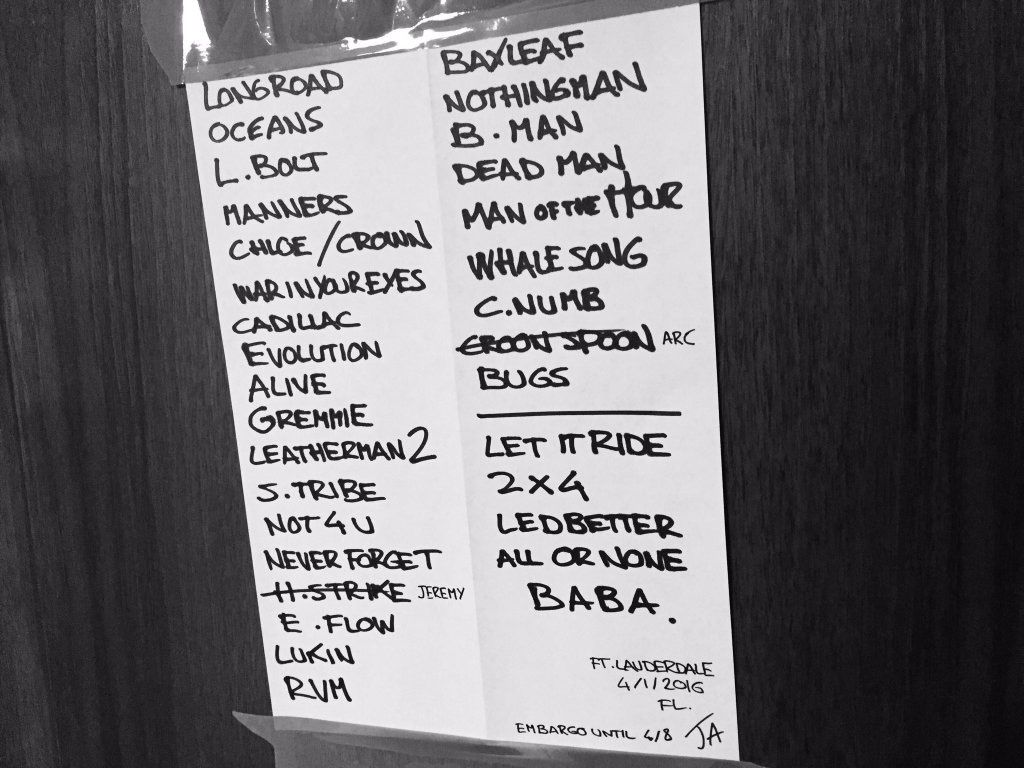 LONG ROAD
OCEANS
L. BOLT
MANNERS
CHLOE / CROWN
WAR IN YOUR EYES
CADILLAC
EVOLUTION
ALIVE
GREMMIE
LEATHERMAN 2
S. TRIBE
NOT 4 U
NEVER FORGET
H. STRIKE JEREMY
E. FLOW
LUKIN
RVM
BAXLEAF
NOTHINGMAN
B. MAN
DEAD MAN
MAN OF THE HOUR
WHALE SONG
C. NUMB
SPOON ARC
BUGS
LET IT RIDE
2 X 4
LEDBETTER
ALL OR NONE
BABA.
FT. LAUDERDALE
4/1/2016
FL.
EMBARGO UNTIL 4/8 JA